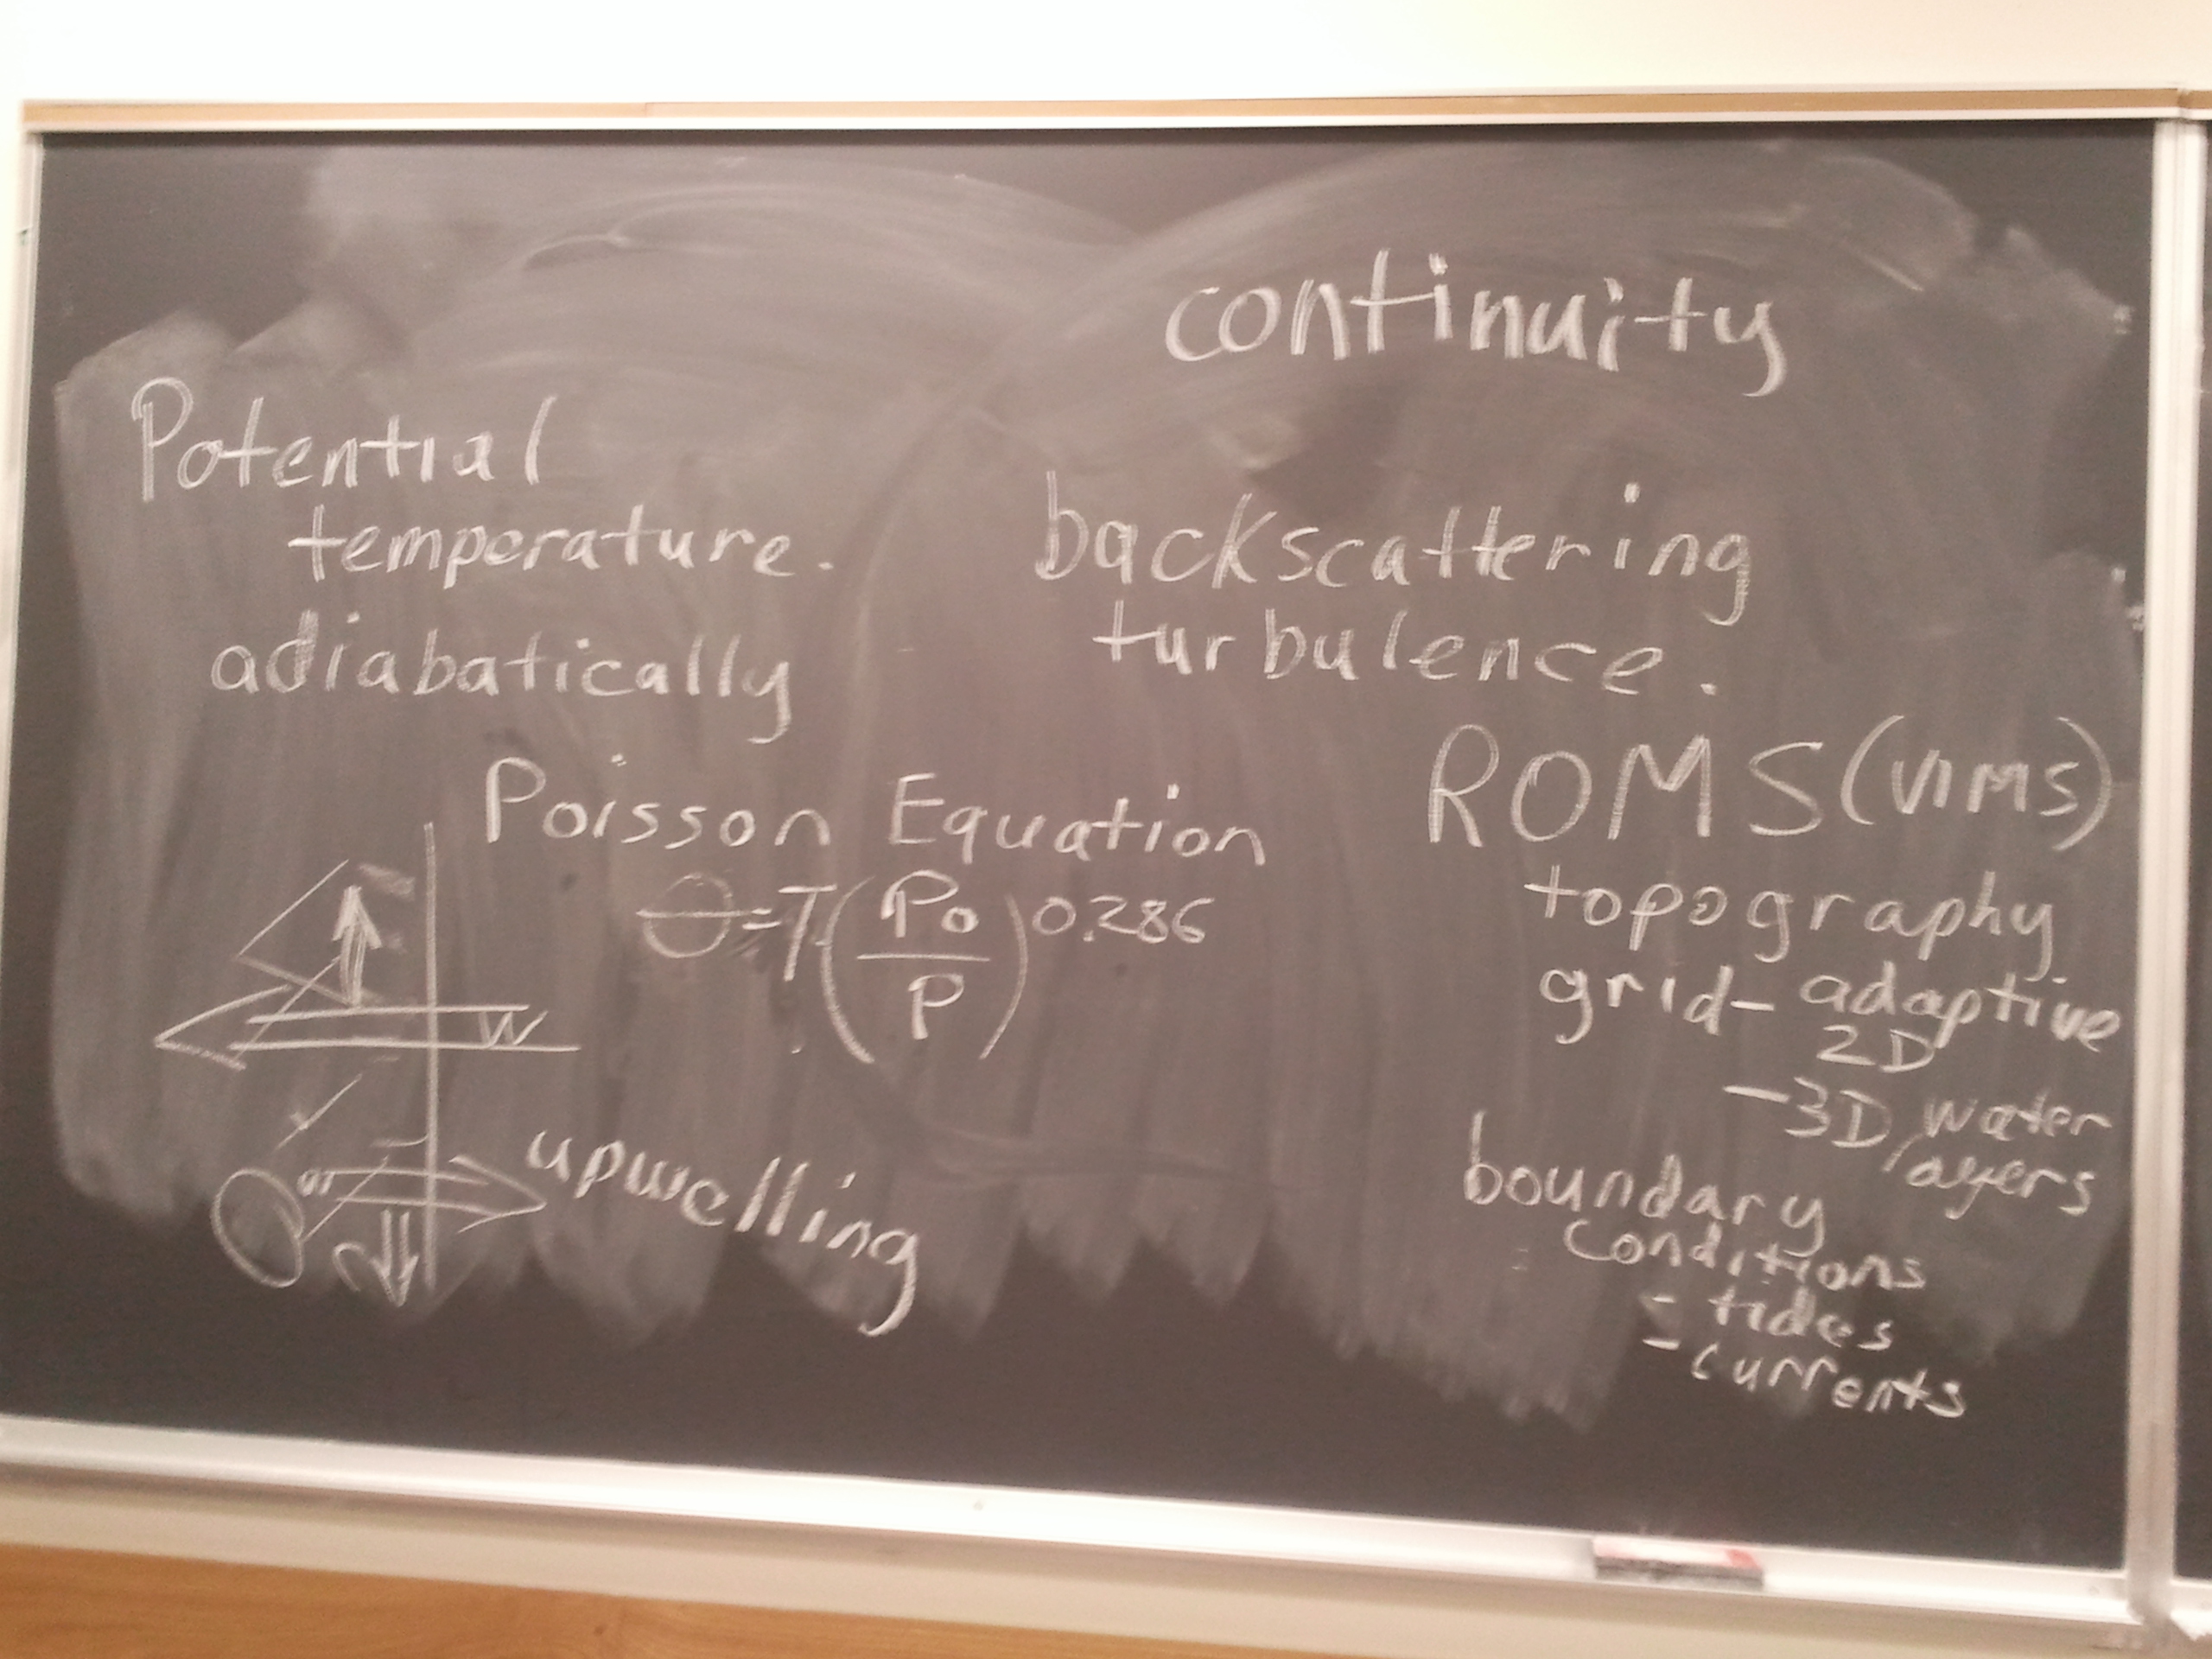 continuity
Potential
temperature.
adiabatically
backscattering
turbulence.
Poisson Equation
Θ=T(Po/P)0.286
W
upwelling
ROMS (VIMS)
topography
grid- adaptive
2D
-3D water
layers
boundary
conditions
- tides
- currents